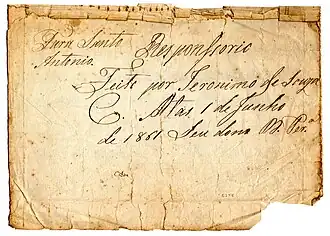 Para Santo Antonio.
Responsorio
Feito por Jeronimo de Souza
C. Atas 1 de Junho
de 1861 Seu dono B. Per.ª